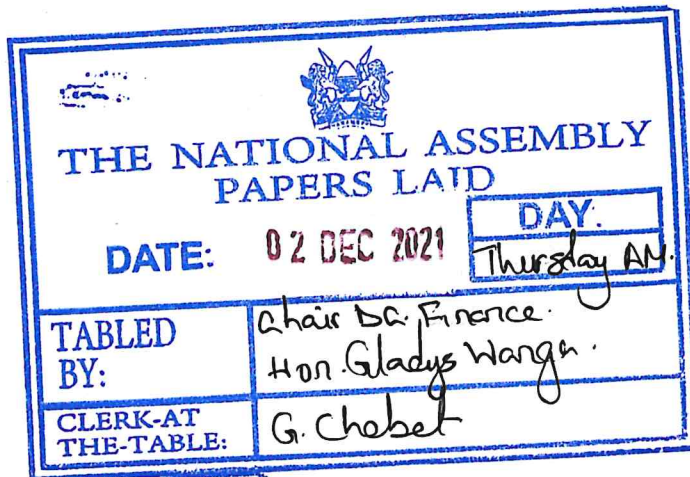 THE NATIONAL ASSEMBLY
PAPERS LAID
DATE: 02 DEC 2021
DAY:
Thursday AM.
TABLED BY:
Chair DC. Finance.
Hon. Gladys Wanga.
CLERK-AT THE-TABLE:
G. Chebet